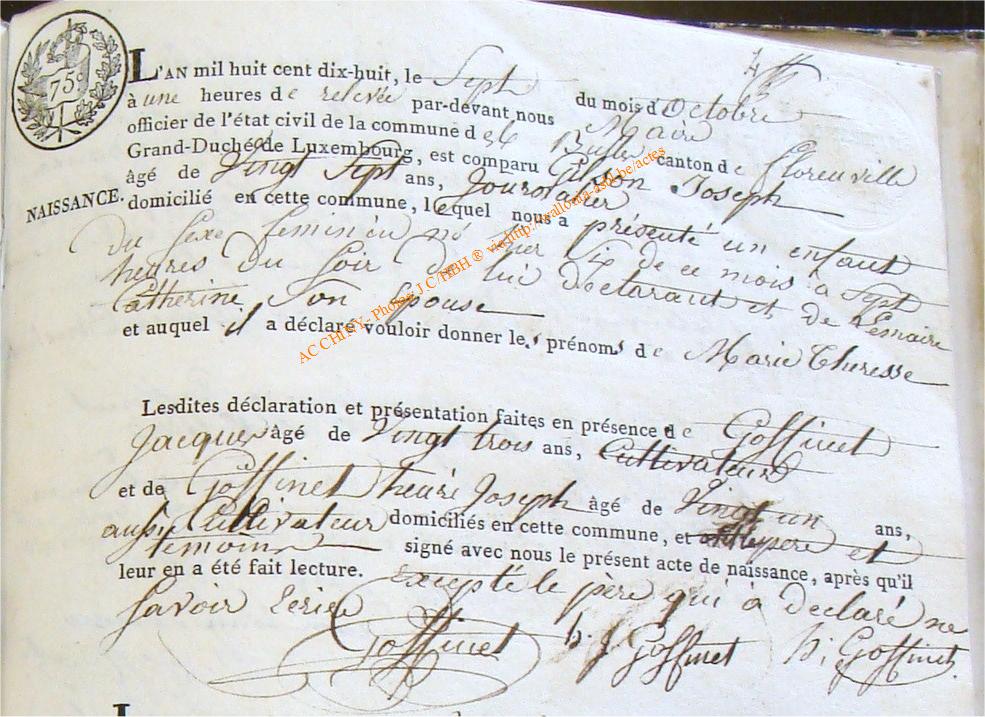 75c
L'AN mil huit cent dix-huit, le Sept du mois d'Octobre
à une heures de relevée par-devant nous Maire
officier de l'état civil de la commune de canton de florenville
Grand-Duché de Luxembourg, est comparu Joseph
âgé de Vingt Sept ans, Journalier
NAISSANCE.
domicilié en cette commune, lequel nous a présenté un enfant
du Sexe feminin né hier Six de ce mois à Sept
heures du Soir de lui declarant et de Lemaire
Catherine Son Epouse
et auquel il a déclaré vouloir donner les prénoms de Marie Theresse
Lesdites déclaration et présentation faites en présence de Goffinet
Jacques âgé de Vingt trois ans, Cultivateur
et de Goffinet henri Joseph âgé de Vingt un ans,
aussi Cultivateur domiciliés en cette commune, et le pere et
temoins signé avec nous le présent acte de naissance, après qu'il
leur en a été fait lecture. excepté le père qui à declaré ne
Savoir Ecrire
Goffinet h. j Goffinet Goffinet
AC CHINY - Photos J C/HBH ® via http://wallonia-asbl.be/actes